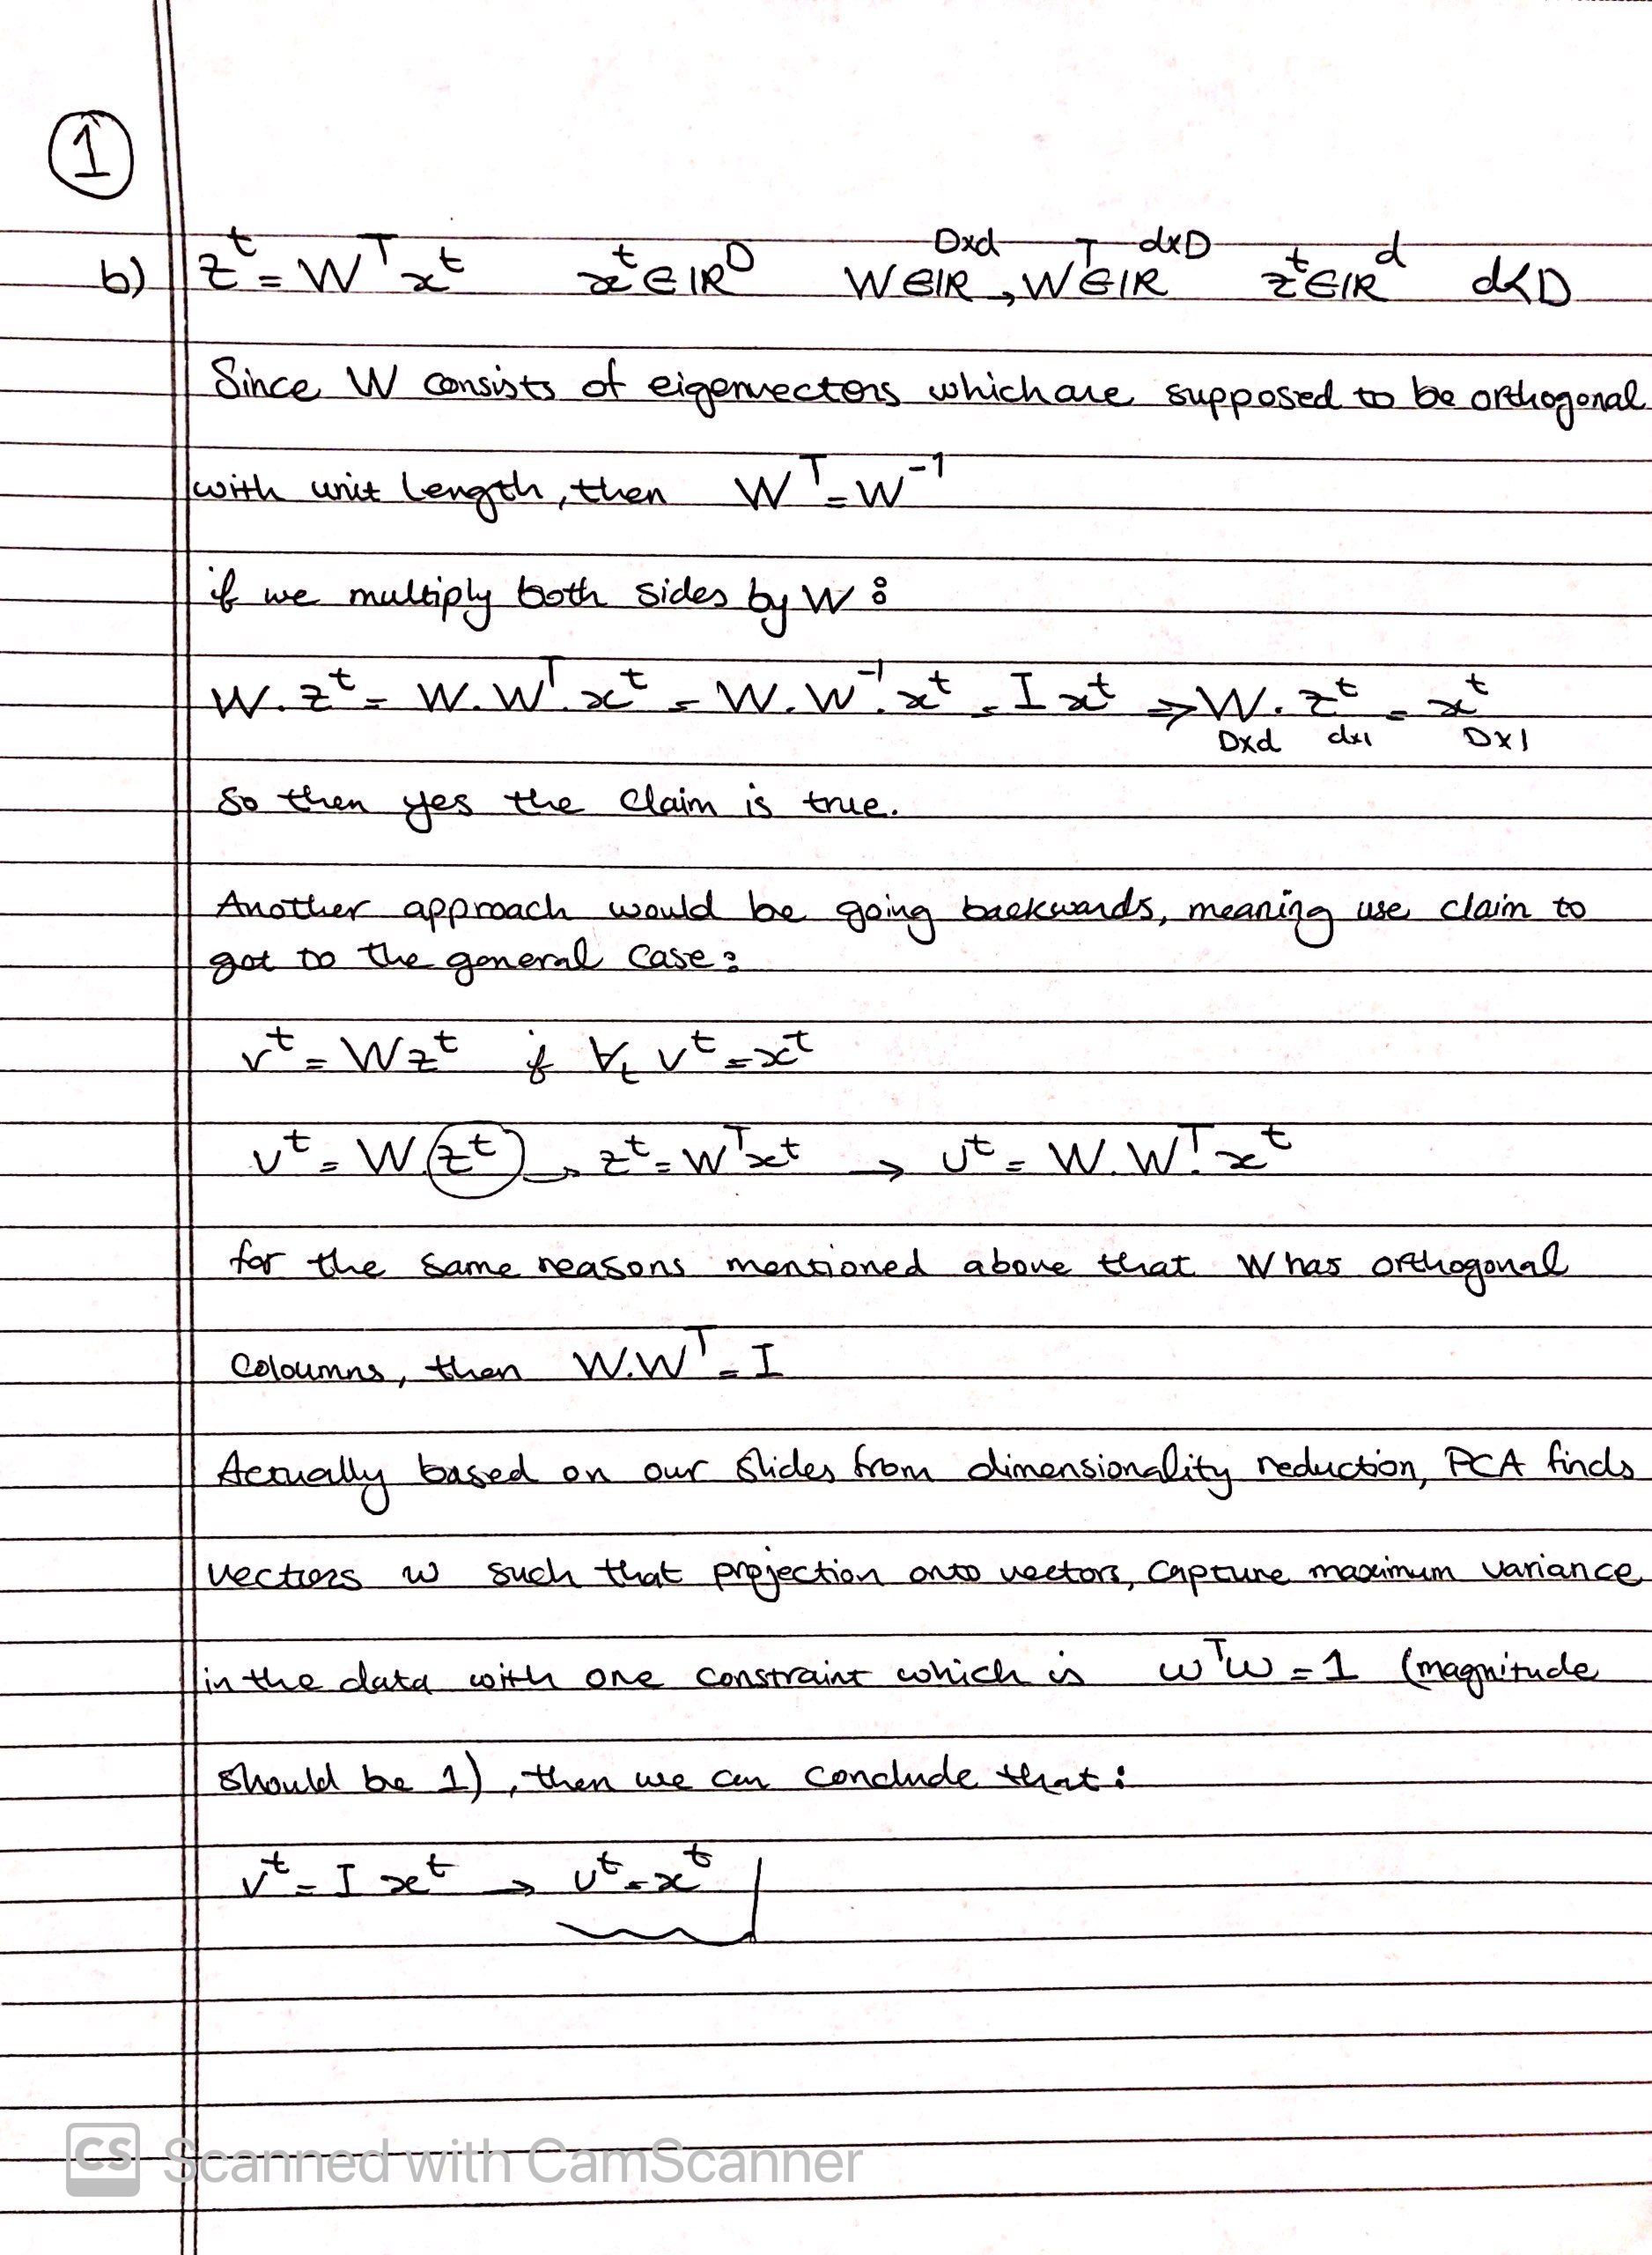 1
b) z^t = W^T x^t x^t ∈ IR^D W ∈ IR^{D×d}, W^T ∈ IR^{d×D} z^t ∈ IR^d d<D
Since W consists of eigenvectors which are supposed to be orthogonal
with unit length, then W^T = W^{-1}
if we multiply both sides by W :
W. z^t = W. W^T. x^t = W. W^{-1}. x^t = I x^t ⇒ W. z^t = x^t
D×d d×1 D×1
so then yes the claim is true.
Another approach would be going backwards, meaning use claim to
got to the general case:
v^t = W z^t if ∀_t v^t = x^t
v^t = W. z^t → z^t = W^T x^t → v^t = W. W^T. x^t
for the same reasons mentioned above that W has orthogonal
coloumns, then W. W^T = I
Actually based on our slides from dimensionality reduction, PCA finds
vectors w such that projection onto vectors, capture maximum variance
in the data with one constraint which is w^T w = 1 (magnitude
should be 1), then we can conclude that:
v^t = I x^t → v^t = x^t
CS Scanned with CamScanner